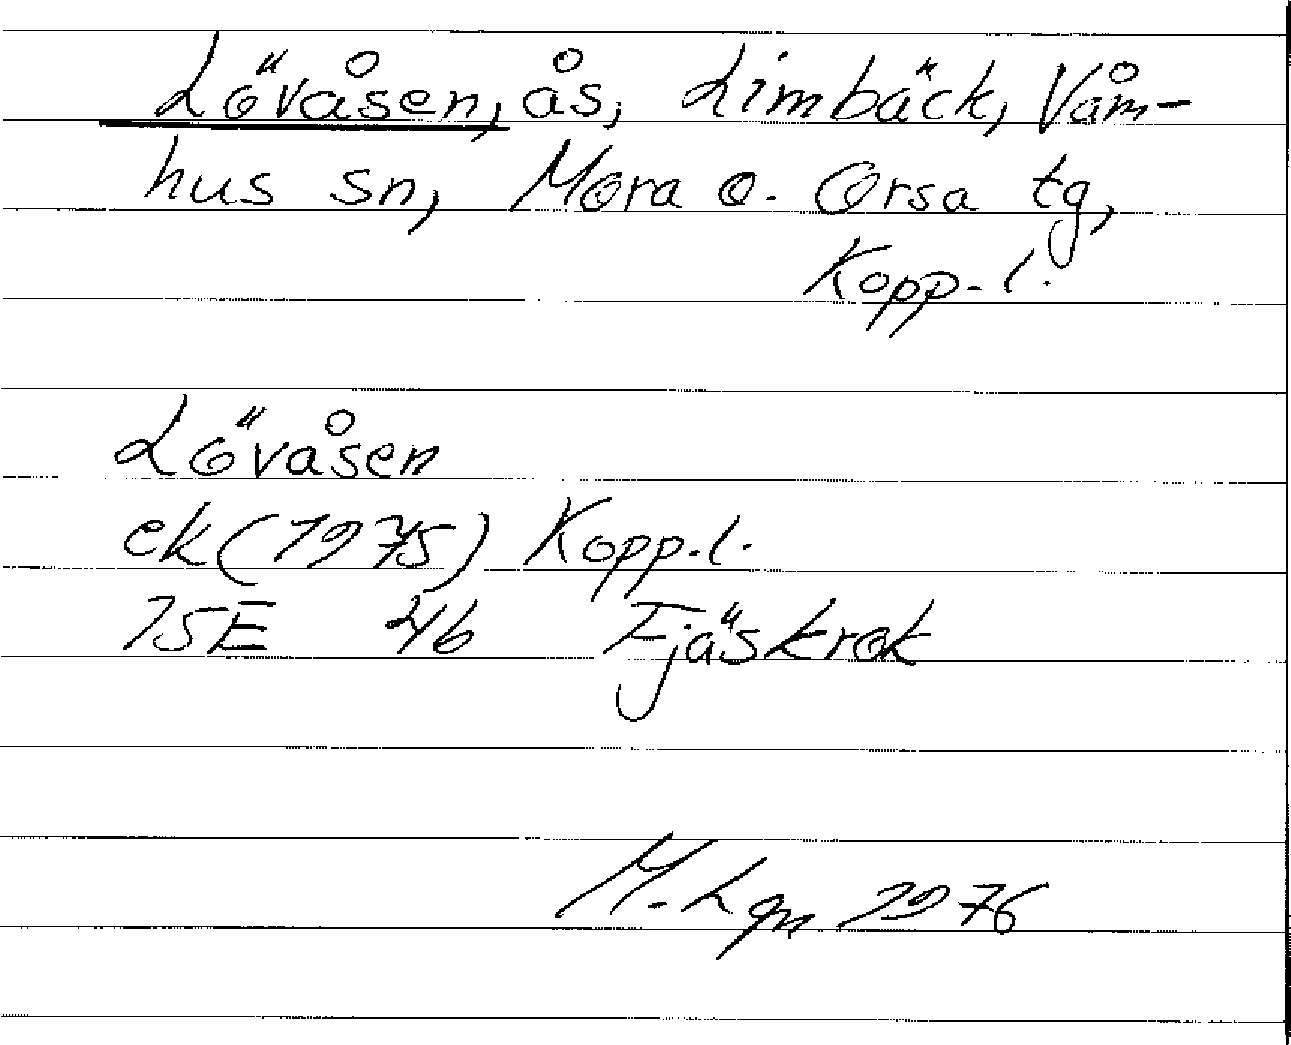 Lövåsen, ås, Limbäck, Våm-
hus sn, Mora o. Orsa tg,
Kopp. l.
Lövåsen
ek (1975) Kopp. l.
15E 4b Fjäskrok
M. Lgn 1976